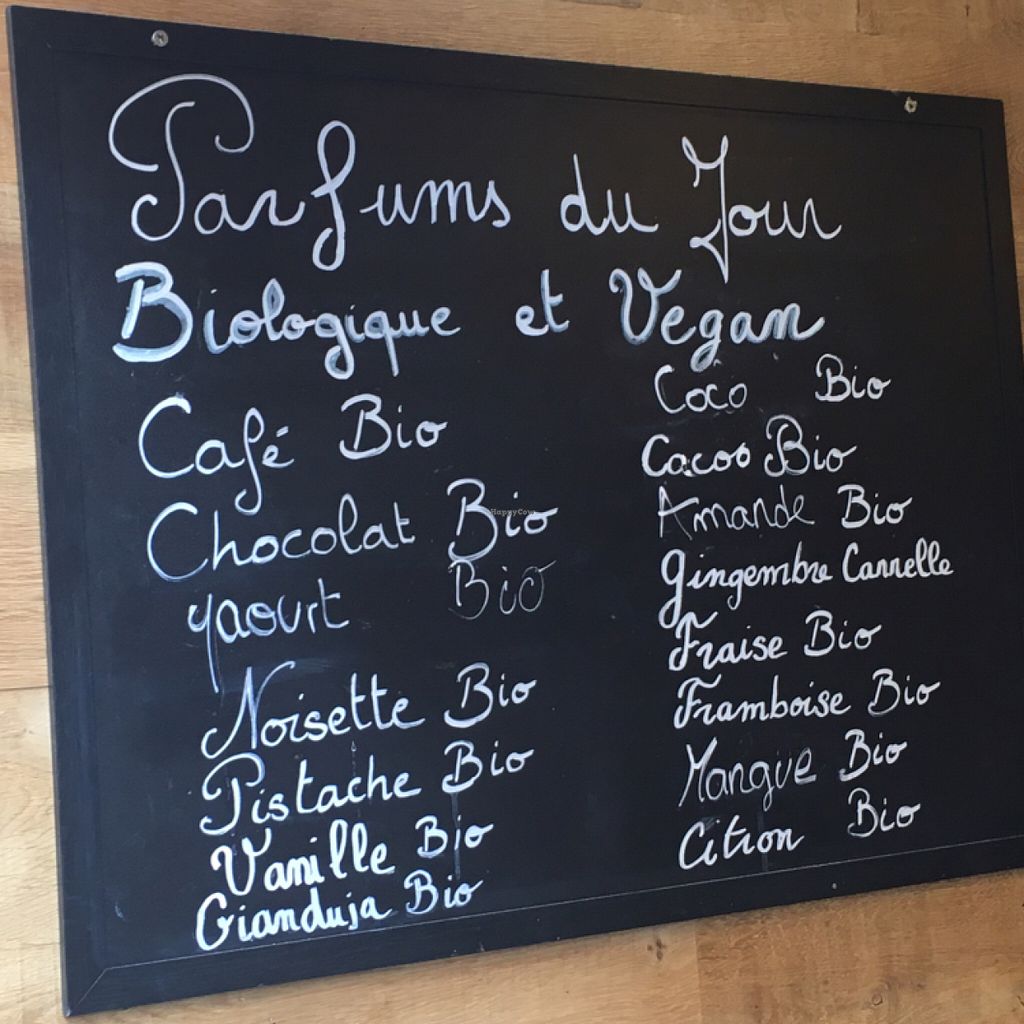 Parfums du Jour
Biologique et Vegan
Café Bio
Chocolat Bio
yaourt Bio
Noisette Bio
Pistache Bio
Vanille Bio
Gianduja Bio
Coco Bio
Cacao Bio
Amande Bio
Gingembre Cannelle
Fraise Bio
Framboise Bio
Mangue Bio
Citron Bio
HappyCow